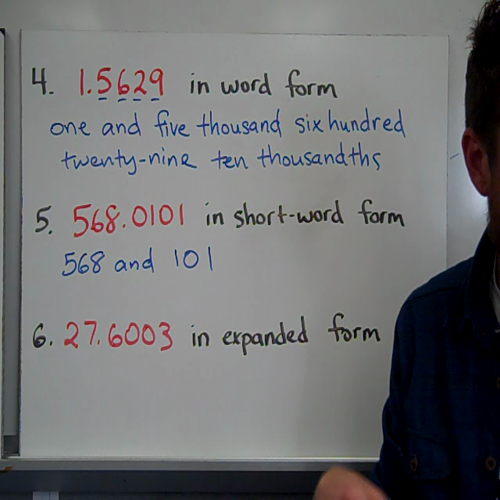 4. 1.5629 in word form
one and five thousand six hundred
twenty-nine ten thousandths
5. 568.0101 in short-word form
568 and 101
6. 27.6003 in expanded form